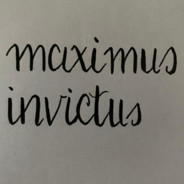 maximus
invictus